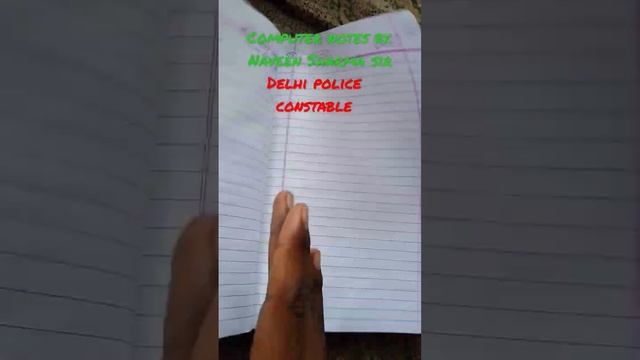 Computer notes by
Naveen Sharma sir
Delhi police
constable